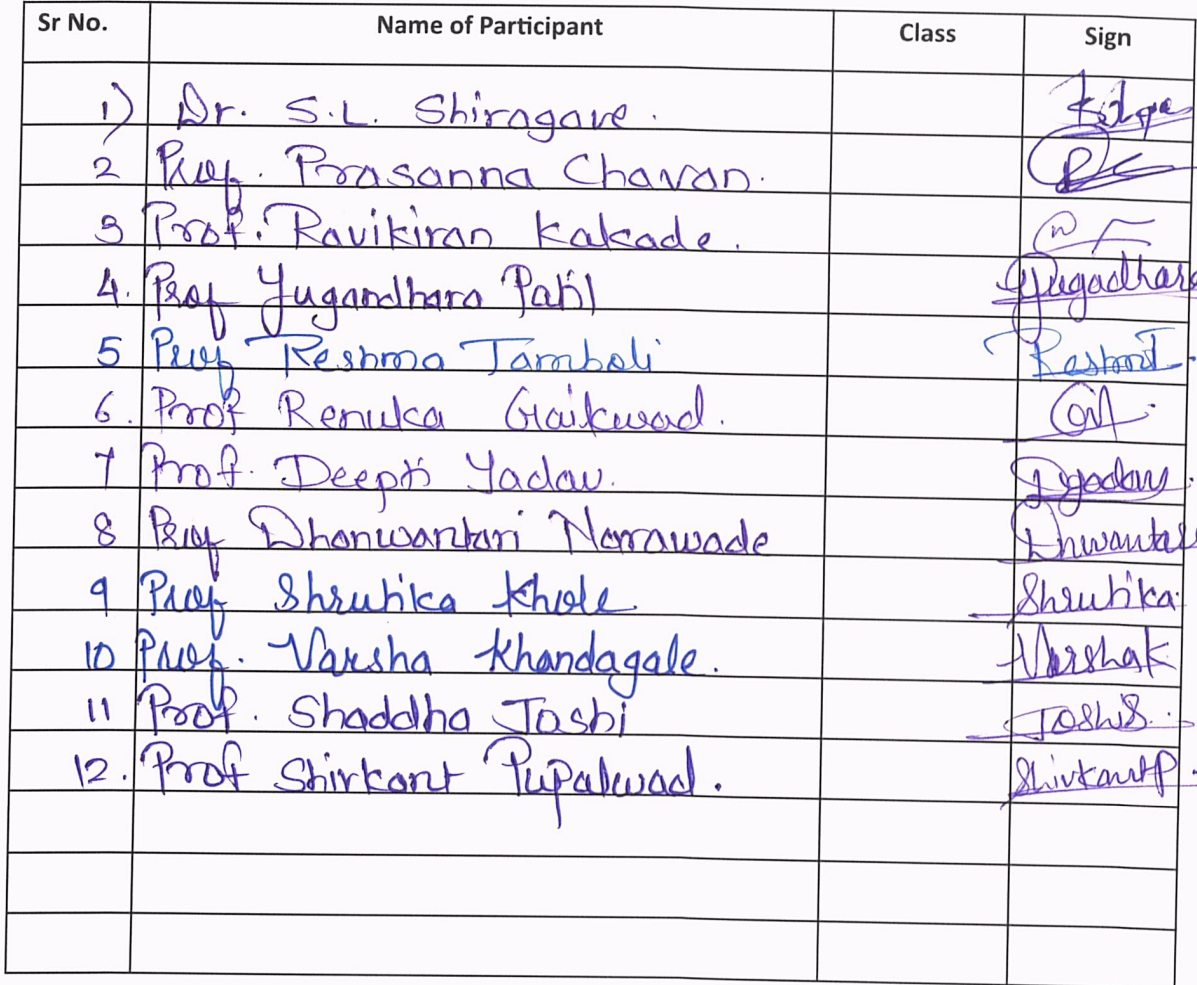 Sr No. Name of Participant Class Sign
1) Dr. S.L. Shiragave.
2 Prof. Prasanna Chavan.
3 Prof. Ravikiran Kakade.
4. Prof Yugandhara Patil Yugadhara
5 Prof Reshma Tamboli ReshmaT.
6. Prof Renuka Gaikwad.
7 Prof. Deepti Yadav. Dyadav.
8 Prof Dhanwantari Narrawade
9 Prof Shrutika Khole. Shrutika.
10 Prof. Varsha Khandagale. Varshak
11 Prof. Shaddha Joshi JoshiS.
12. Prof Shirkant Pupalwad. ShirkantP.